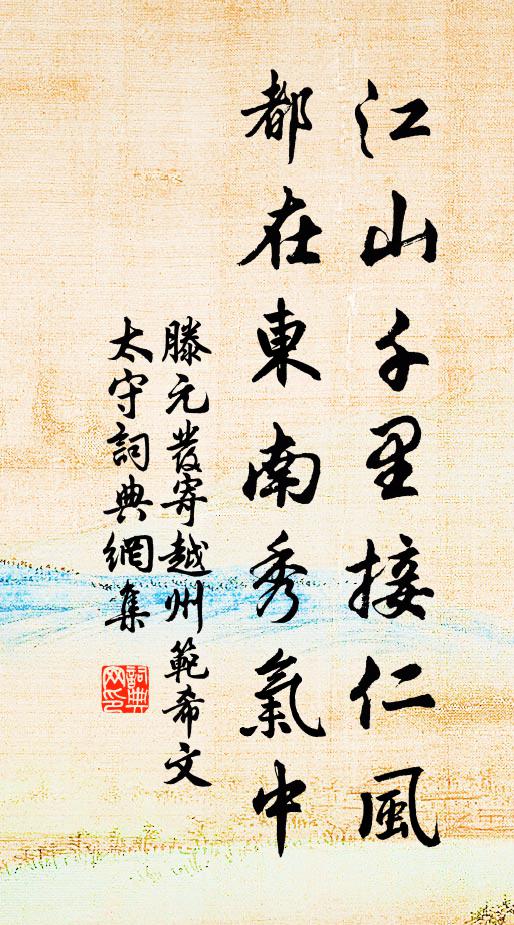 江山千里接仁風
都在東南秀氣中
滕元發寄越州範希文
太守詞典網集
詞典
网印